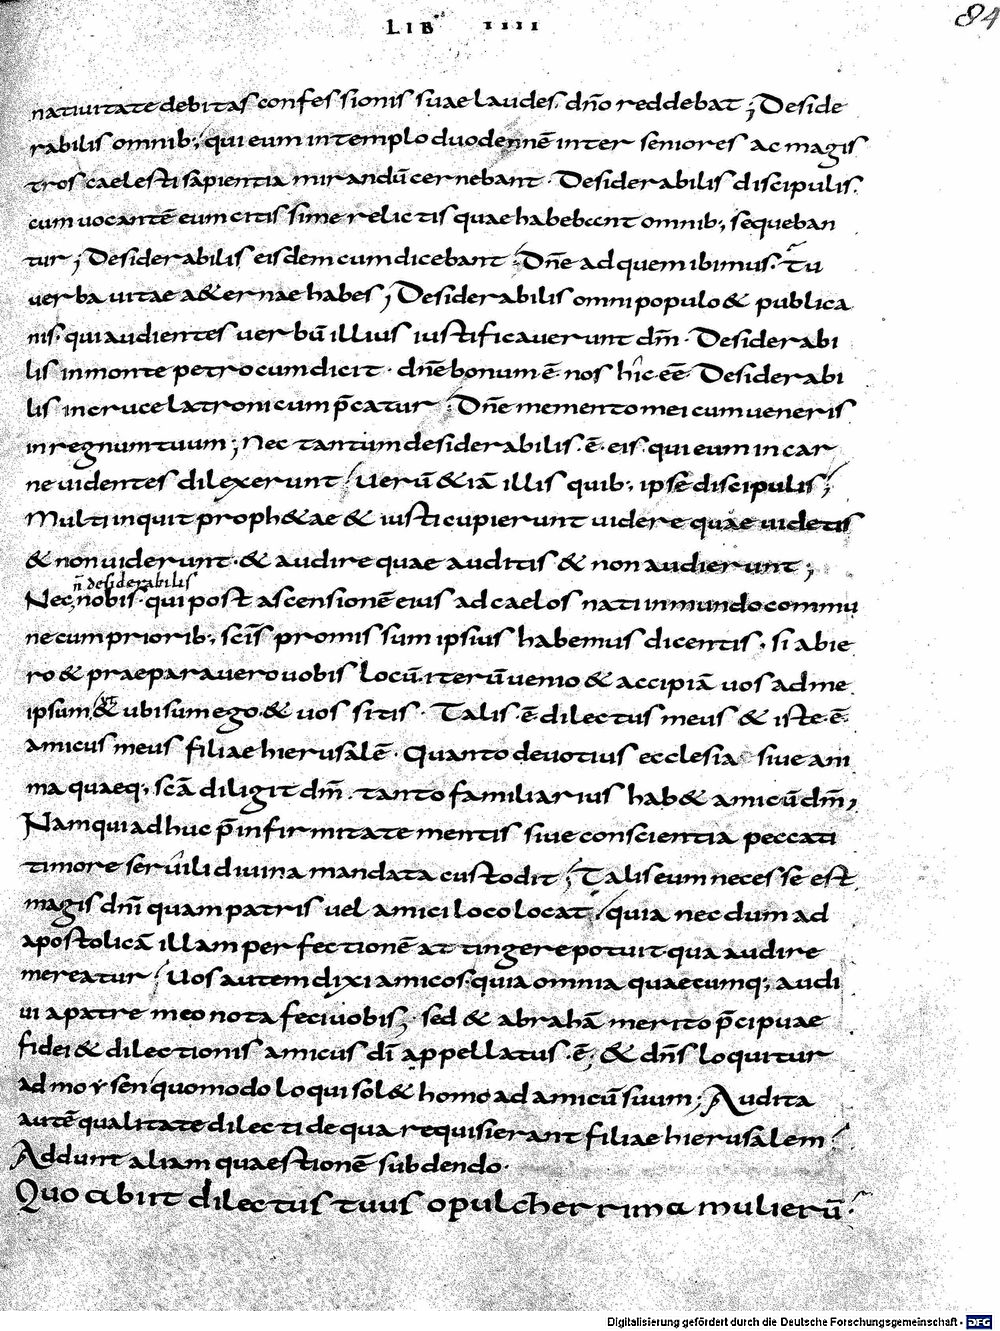 LIB IIII
84
natiuitate debitas confessionis suae laudes dño reddebat; Deside
rabilis omnib; qui eum in templo duodennē inter seniores ac magis
tros caelesti sapientia mirandū cernebant. Desiderabilis discipulis.
cum uocantē eum citissime relictis quae habebant omnib; sequeban
tur; Desiderabilis eisdem cum dicebant. Dñe ad quem ibimus. Tu
uerba uitae a&ernae habes; Desiderabilis omni populo & publica
nis. qui audientes uerbū illius iustificauerunt dm̄. Desiderabi
lis in monte petro cum dicit. dñe bonum ē nos hic eē Desiderabi
lis in cruce latroni cum p̄catur. Dñe memento mei cum ueneris
in regnum tuum; Nec tantum desiderabilis. ē. eis. qui eum in car
ne uidentes dilexerunt. Uerū &iā illis quib; ipse discipulis;
Multi inquit proph&ae & iusti cupierunt uidere quae uidetis
& non uiderunt. & audire quae auditis & non audierunt;
n̄ desiderabilis
Nec nobis. qui post ascensionē eius ad caelos nati in mundo commu
ne cum priorib; scīs promissum ipsius habemus dicentis. si abie
ro & praeparauero uobis locū. iterū uenio & accipiā uos ad me
ipsum. ut & ubi sum ego. & uos sitis. Talis. ē. dilectus meus & iste. ē.
amicus meus filiae hierusalē. Quanto deuotius ecclesia siue ani
ma quaeq; scā diligit dm̄. tanto familiarius hab& amicū dm̄;
Nam qui adhuc p̄ infirmitate mentis siue conscientia peccati
timore seruili diuina mandata custodit; Talis eum necesse est
magis dn̄i quam patris uel amici loco locat. quia necdum ad
apostolicā illam perfectionē attingere potuit qua audire
mereatur. Uos autem dixi amicos. quia omnia quaecumq; audi
ui a patre meo nota feci uobis; sed & abrahā merito p̄cipuae
fidei & dilectionis amicus dī appellatus. ē; & dn̄s loquitur
ad moysen quomodo loqui sol& homo ad amicū suum; Audita
autē qualitate dilecti de qua requisierant filiae hierusalem.
Addunt aliam quaestionē subdendo.
Quo abiit dilectus tuus o pulcherrima mulierū.
Digitalisierung gefördert durch die Deutsche Forschungsgemeinschaft - DFG